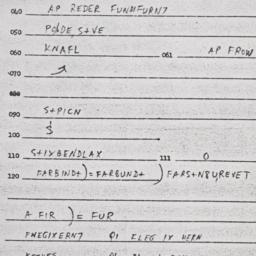 040 AP REDER FUNMFURN7
050 PODE, S+VE
060 KNAFL 061 AP FROW
070
080
090 S+PICN
100 S
110 S+IXBENDLAX 111 0
120 FARBIND+) = FARBUND+) FARS+N8UREVET
A FIR ) = FUR
FWEGIXERN7 01 ELEG IX HERN